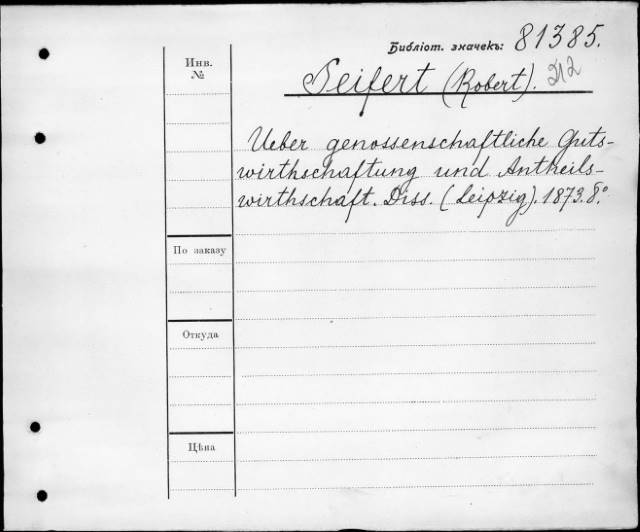 Библіот. значекъ: 81385.
Инв.
№
Seifert (Robert).
Ueber genossenschaftliche Guts-
wirthschaftung und Antheils-
wirthschaft. Diss. (Leipzig). 1873. 8.°
По заказу
Откуда
Цѣна